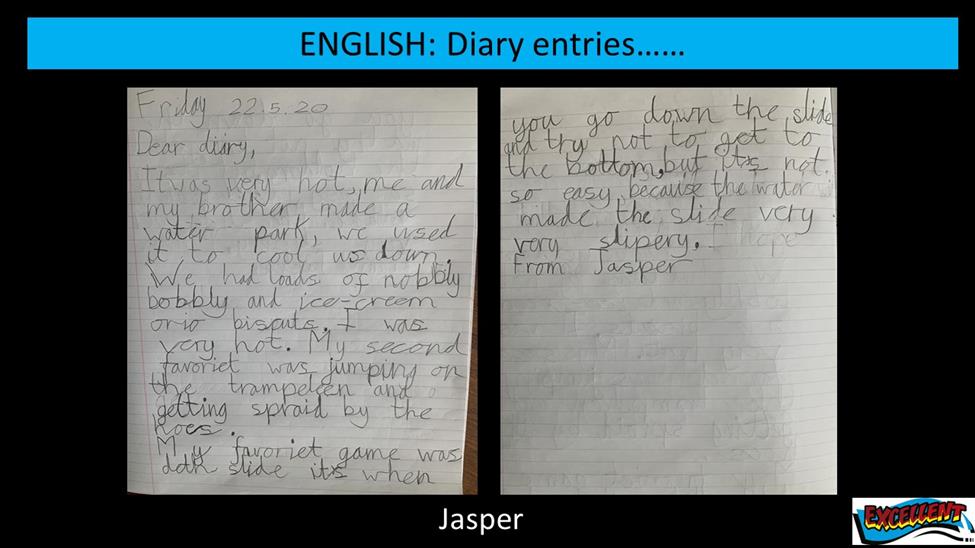 ENGLISH: Diary entries......
Friday 22.5.20
Dear diary,
It was very hot, me and
my brother made a
water park, we used
it to cool us down.
We had loads of nobbily
bobbly and ice-creem
orio biscuts. I was
very hot. My second
favoriet was jumping on
the trampeleen and
getting spraid by the
hoes.
My favoriet game was
deth slide it's when
you go down the slide
and try not to get to
the bottom, but it's not
so easy, because the water
made the slide very
very slipery. I hope
From Jasper
Jasper
EXCELLENT